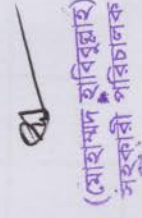 (মোহাম্মদ হাবিবুল্লাহ)
সহকারী পরিচালক